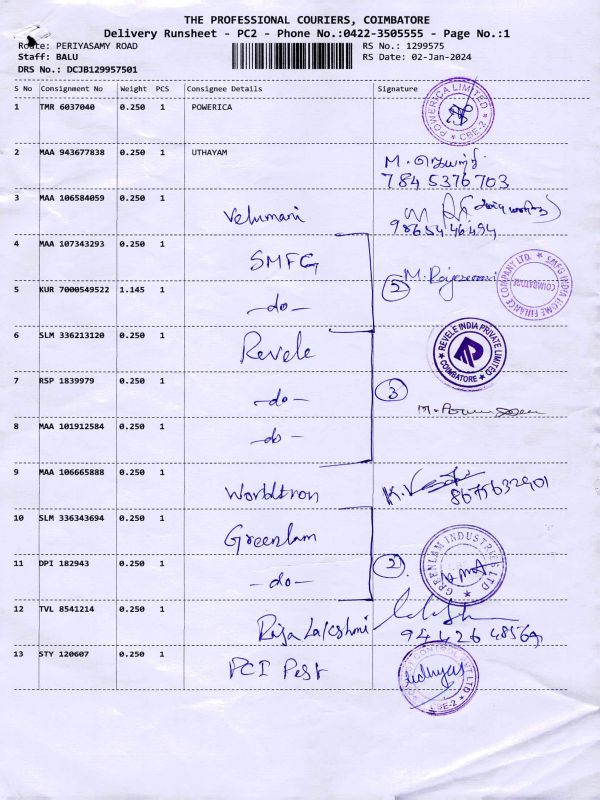 THE PROFESSIONAL COURIERS, COIMBATORE
Delivery Runsheet - PC2 - Phone No.:0422-3505555 - Page No.:1
Route: PERIYASAMY ROAD RS No.: 1299575
Staff: BALU RS Date: 02-Jan-2024
DRS No.: DCJB129957501
S No Consignment No Weight PCS Consignee Details Signature
1 TMR 6037040 0.250 1 POWERICA POWERICA LIMITED CBE-2
2 MAA 943677838 0.250 1 UTHAYAM M.
7845376703
3 MAA 106584059 0.250 1 Velumani
9865446494
4 MAA 107343293 0.250 1 SMFG
5 KUR 7000549522 1.145 1 -do- 5 SMFG INDIA HOME FINANCE COMPANY LTD. COIMBATORE
6 SLM 336213120 0.250 1 Revele REVELE INDIA PRIVATE LIMITED COIMBATORE
7 RSP 1839979 0.250 1 -do- 3
8 MAA 101912584 0.250 1 -do-
9 MAA 106665888 0.250 1 Worldtron K.
8675632901
10 SLM 336343694 0.250 1 Greenlam GREENLAM INDUSTRIES LTD
11 DPI 182943 0.250 1 -do- 2
12 TVL 8541214 0.250 1 Raja Lakshmi
13 STY 120607 0.250 1 PCI Pest CBE-2